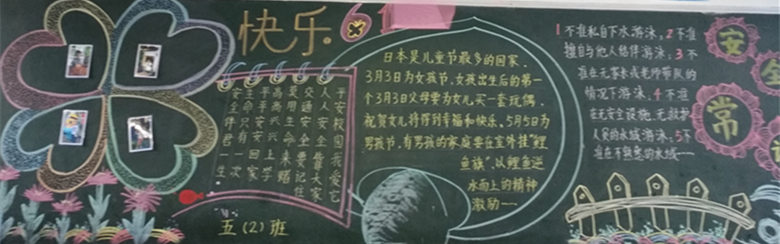 快乐61
平安校园我爱它
人人安全靠大家
交通安全要记住
用生命来赌
高高兴兴上学
平平安安回家
生命只有一次
安全伴君一生
五(2)班
日本是儿童节最多的国家.
3月3日为女孩节,女孩出生后的第一
个3月3日父母要为女儿买一套玩偶,
祝贺女儿将得到幸福和快乐。5月5日为
男孩节,有男孩的家庭要在室外挂“鲤
鱼旗”,以鲤鱼逆
水而上的精神
激励……
1不准私自下水游泳;2不准
擅自与他人结伴游泳;3不
准在无家长或老师带队的
情况下游泳;4不准
在无安全设施、无救护
人员的水域游泳;5不
准在不熟悉的水域……
安全
常识